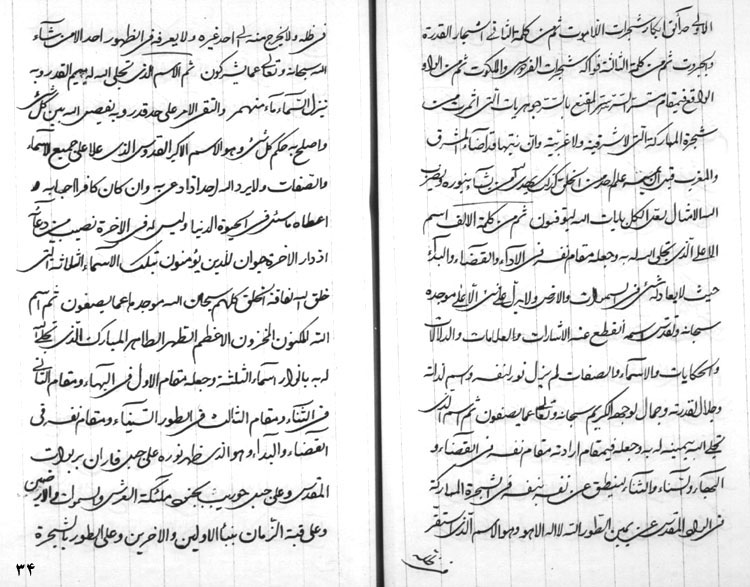 الاولی حدائق ابکار شجرات اللاهوت ثم من کلمة الثانی اشجار القدرة
والجبروت ثم من کلمة الثالثة فواکه شجرات الفردوس والملکوت ثم من الواو
الواقع فی مقام
شجرة المبارکة التی لا شرقیة ولا غربیة وان نسبتها قد اضاء المشرق
والمغرب قبل ان
الله الامثال بعد الکل بایات الله لیوقنون ثم من کلمة الالف اسم
الاعلی الذی تجلی الله له به وجعله مقام نفسه فی الاداء والقضاء والبداء
حیث لا یعادله شیء فی السموات والارض ولا یزال علی شیء الا علی موحده
سبحانه وتقدس اسمه انقطع عنه الاشارات والعلامات والدلالات
والحکایات والاسماء والصفات لم یزل نور لنفسه وبسم لذاته
وجلال لقدرته وجمال لوجهه الکریم سبحانه وتعالی عما یصفون ثم اسم الذی
تجلی الله بیمینه له به وجعله فی مقام ارادته مقام نفسه فی القضاء و
البهاء والسناء والثناء لینطق عن نفسه بنفسه فی الشجرة المبارکة
فی الواد المقدس عن یمین الطور الله لا اله الا هو وهو الاسم الذی استقر
فی ظله
فی ظله ولا یخرج منه الی احد غیره ولا یعرفه فی الظهور احد الا من شاء
الله سبحانه وتعالی عما یشرکون ثم الاسم الذی تجلی الله له بیمیم القدر وبه
نیزل السماء ماء منهمر والتقی الامر علی حد قدر وبه یفصل الله بین کل شیء
واصلح به حکم کل شیء وهو الاسم الاکبر القدوس الذی علا علی جمیع الاسماء
والصفات ولا یرد الله احدا اذا دعی به وان کان کافرا اجابه و
اعطاه ما سئل فی الحیوة الدنیا ولیس له فی الاخرة نصیب من دعائه
اذ دار الاخرة حیوان للذین یؤمنون بتلک الاسماء الثلاثة التی
خلق الله لفاقة الخلق کلهم سبحان الله موجدها عما یصفون ثم اسم
الله المکنون المخزون الاعظم الظهر الطاهر المبارک الذی تجلی الله
له به بانوار اسماء الثلثة وجعله مقام الاول فی البهاء ومقام الثانی
فی الثناء ومقام الثالث فی الطور السیناء ومقام نفسه فی
القضاء والبداء وهو الذی ظهر نوره علی جبل فاران بربوات
المقدس وعلی جبل حوریب بجند ملئکة العرش والسموات والارضین
وعلی قبة الزمان بنبأ الاولین والاخرین وعلی الطور بالشجرة
۳۴